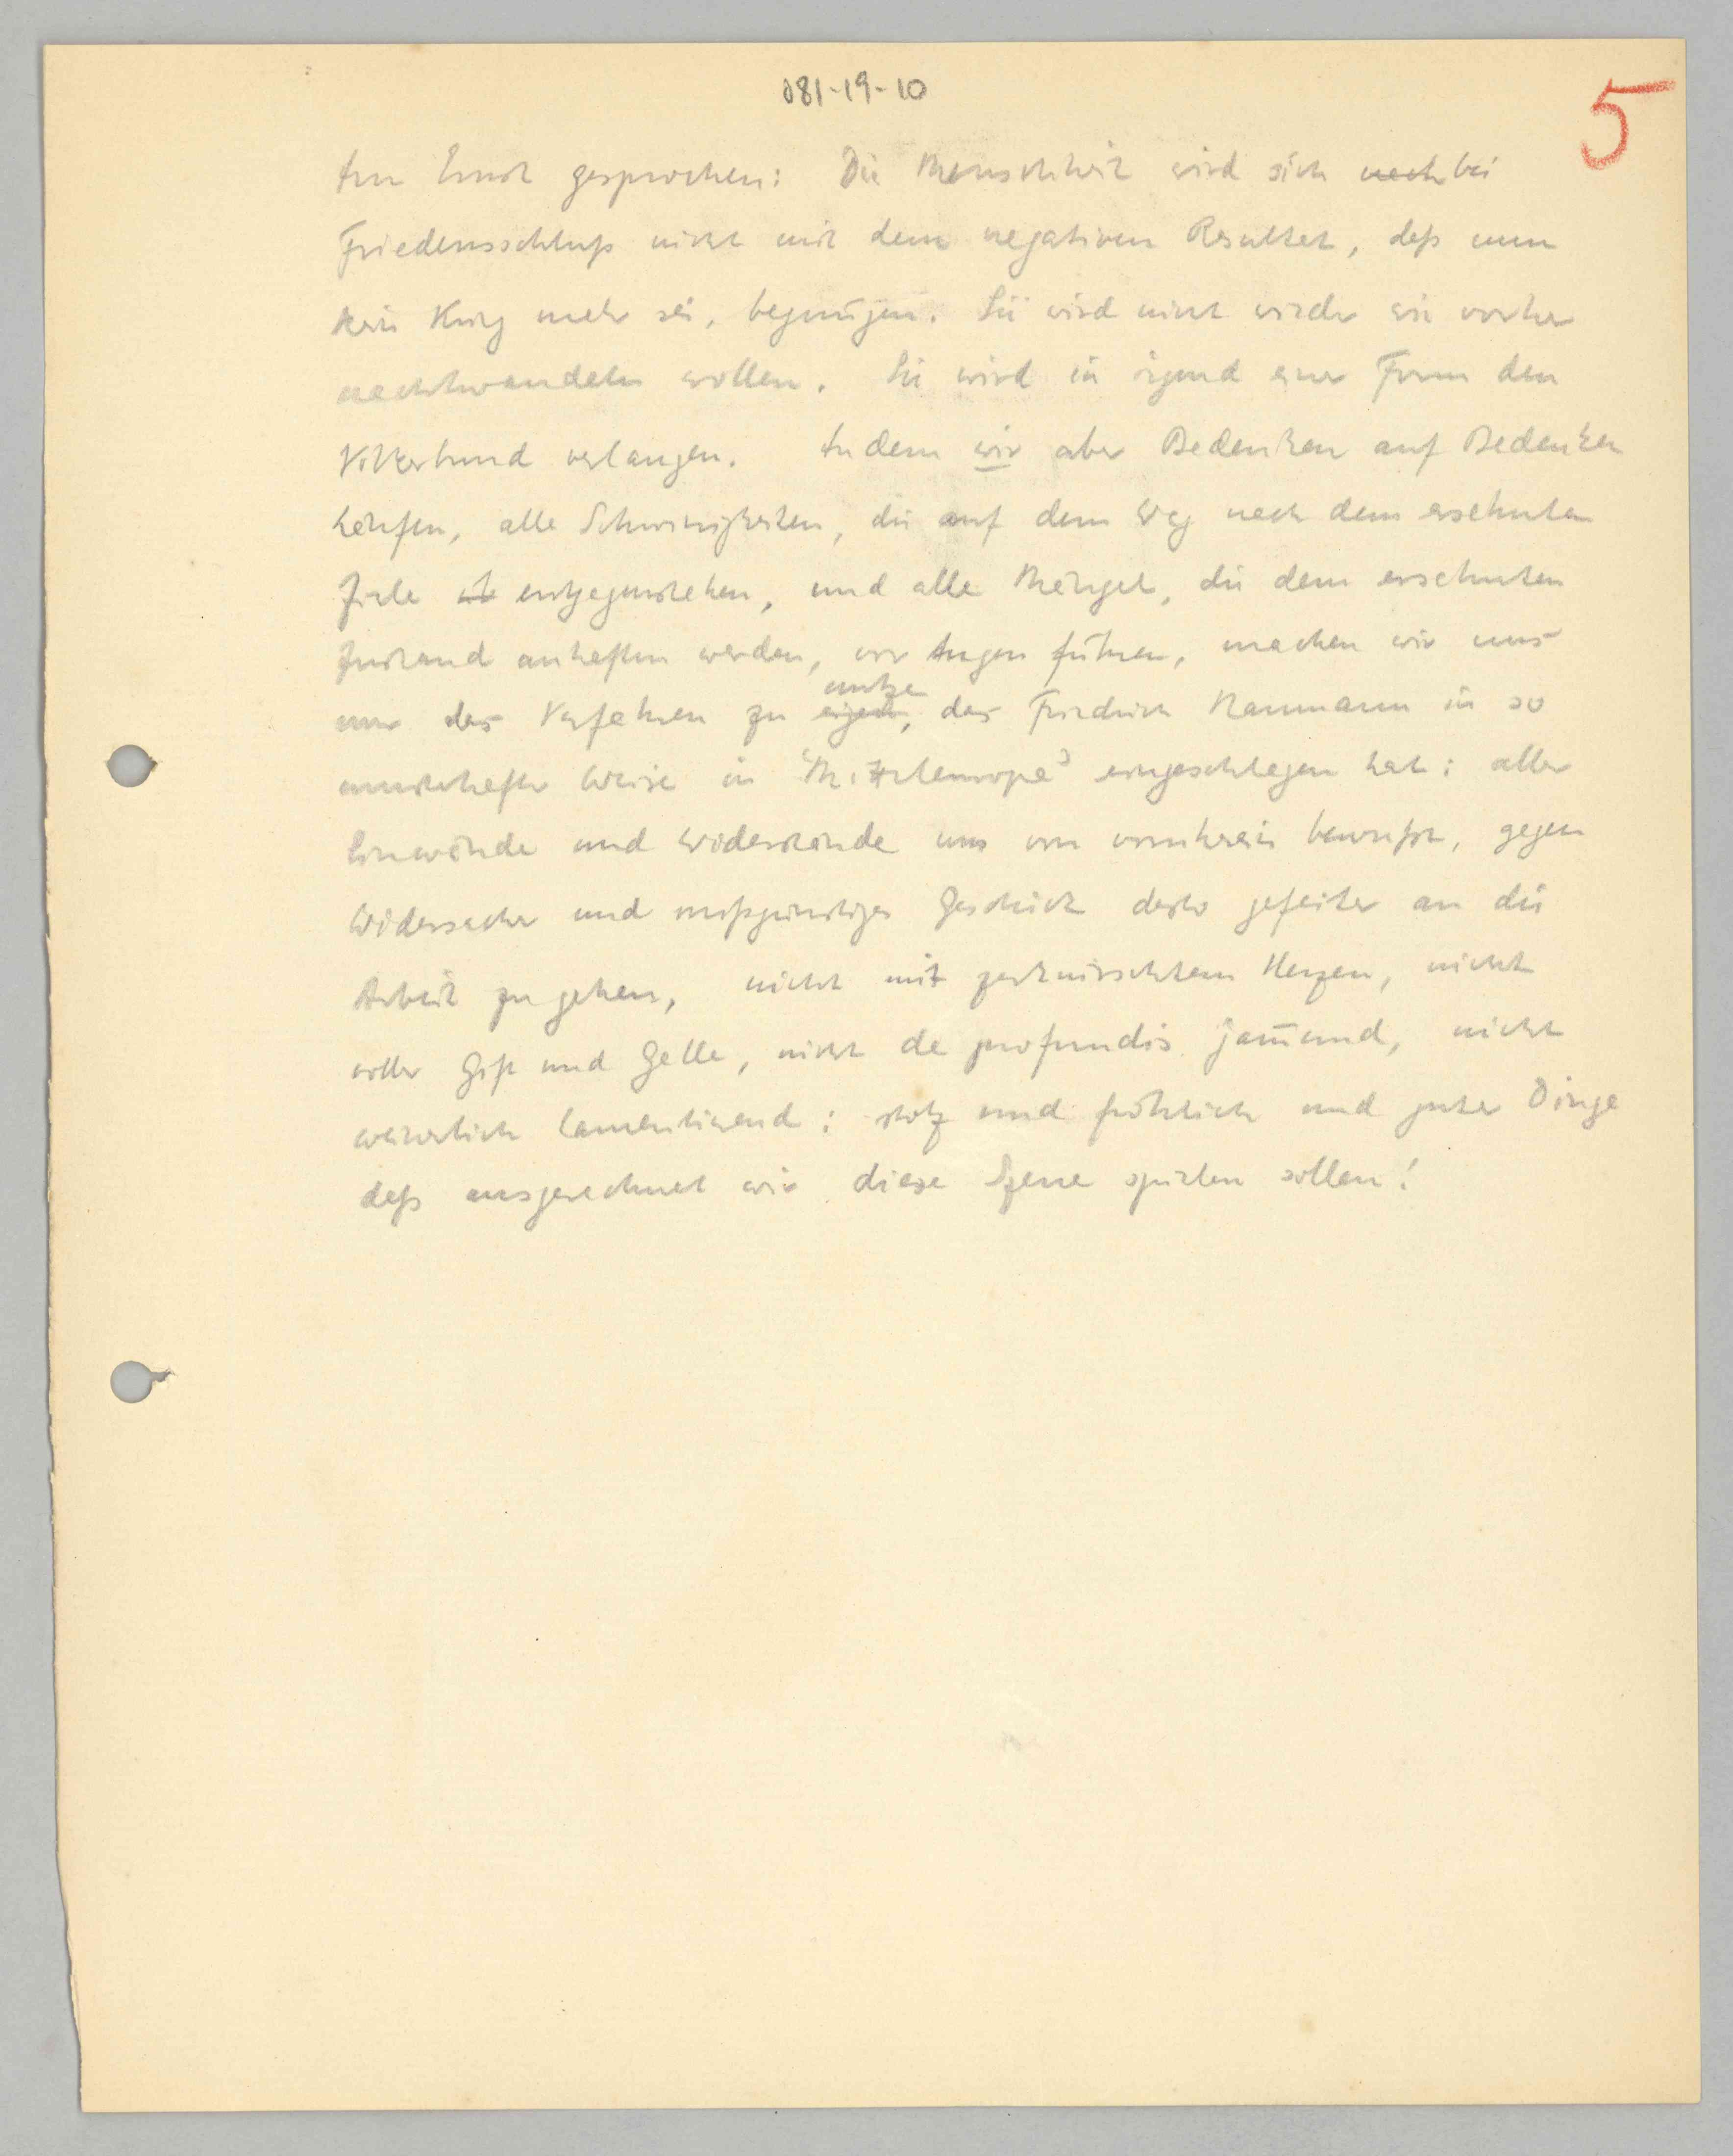 081-19-10
5
Im Ernst gesprochen: Die Menschheit wird sich nach bei
Friedensschluß nicht mit dem negativen Resultat, daß nun
kein Krieg mehr sei, begnügen. Sie wird nicht wieder wie vorher
nachtwandeln wollen. Sie wird in irgend einer Form den
Völkerbund verlangen. Indem wir aber Bedenken auf Bedenken
häufen, alle Schwierigkeiten, die auf dem Weg nach dem ersehnten
Ziele entgegenstehen, und alle Mängel, die dem ersehnten
Zustand anhaften werden, vor Augen führen, machen wir uns
nutze
nur das Verfahren zu eigen, das Friedrich Naumann in so
musterhafter Weise in "Mitteleuropa" eingeschlagen hat: aller
Einwände und Widerstände uns von vornherein bewußt, gegen
Widersacher und mißgünstiges Geschick desto gefeiter an die
Arbeit zu gehen, nicht mit zerknirschtem Herzen, nicht
voller Gift und Galle, nicht de profundis jam̅ernd, nicht
weinerlich lamentierend: stolz und fröhlich und guter Dinge
daß ausgerechnet wir diese Szene spielen sollen!